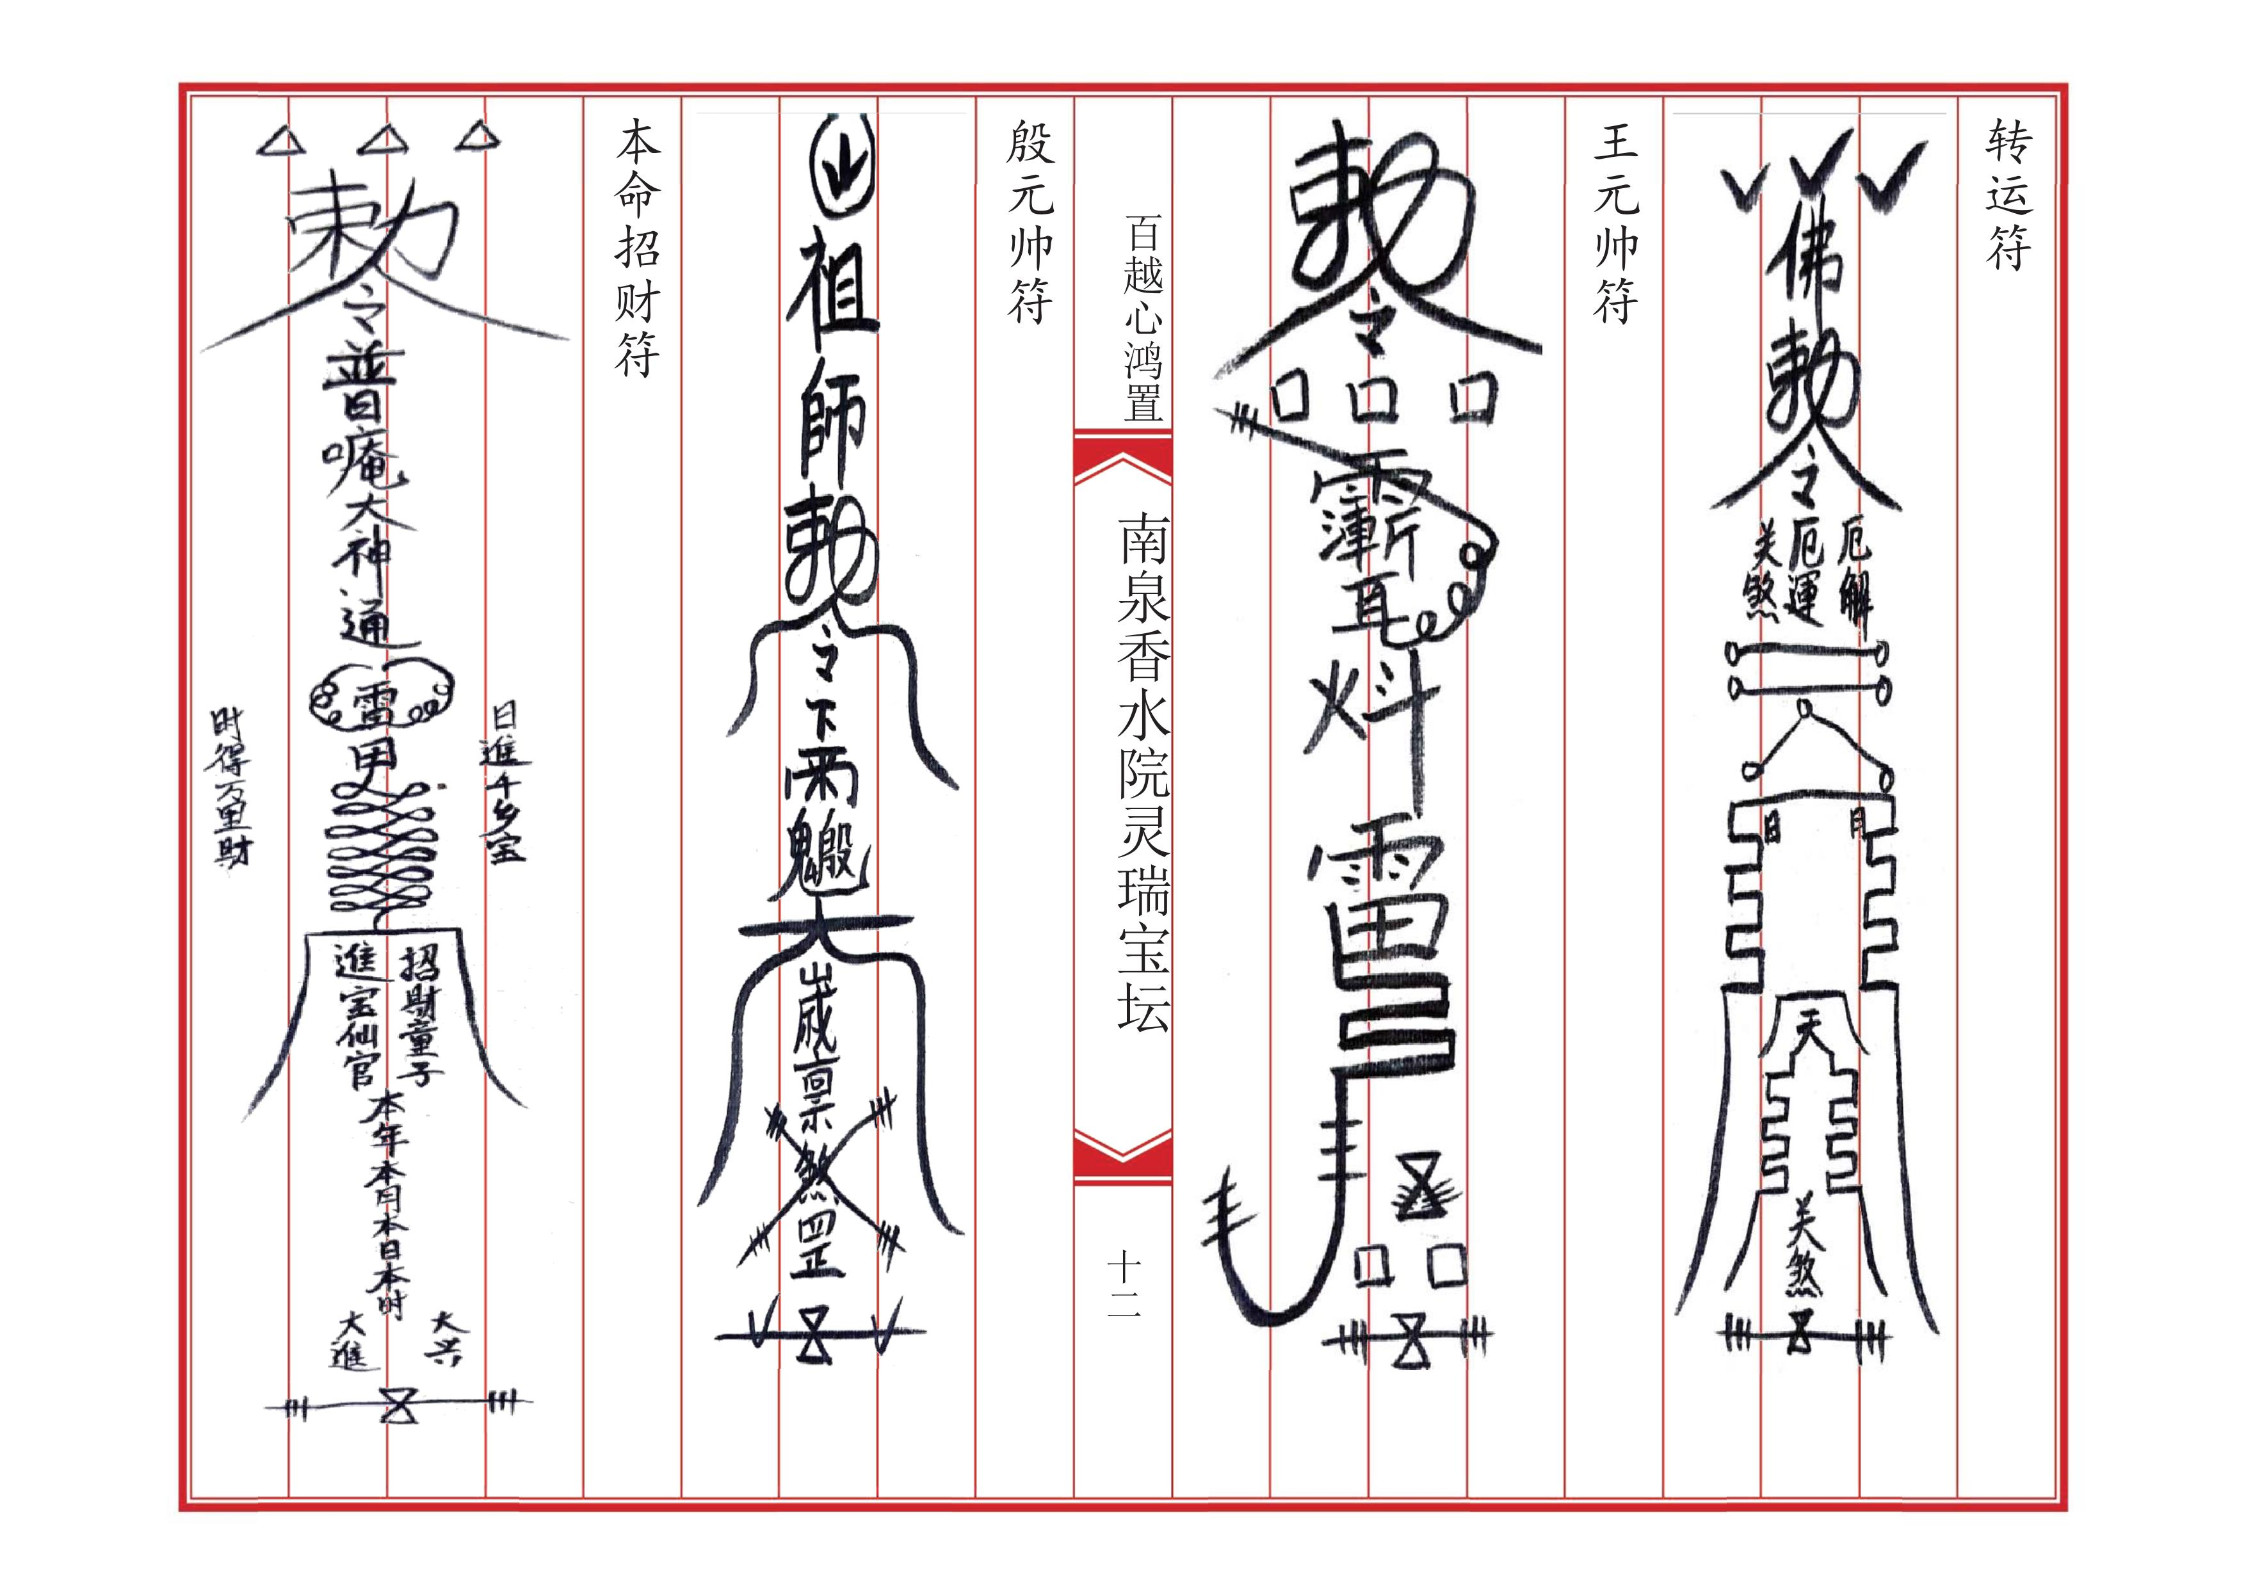 转运符
佛
勅令
厄解
厄運
关煞
日 日
天
关煞
王元帅符
勅令
雷
百越心鸿置
南泉香水院灵瑞宝坛
十二
殷元帅符
祖師勅令下
煞
罡
本命招财符
勅令普唵大神通
雷
日進千乡宝
时得万里財
招財童子
進宝仙官
本年本月本日本时
大兴
大進